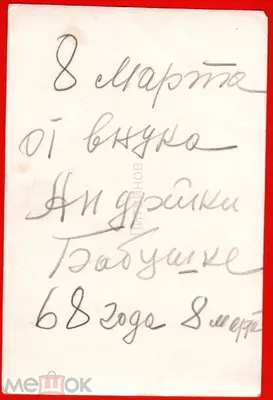 8 Марта
от внука
Андрейки
Бабушке
68 года 8 марта
мешок